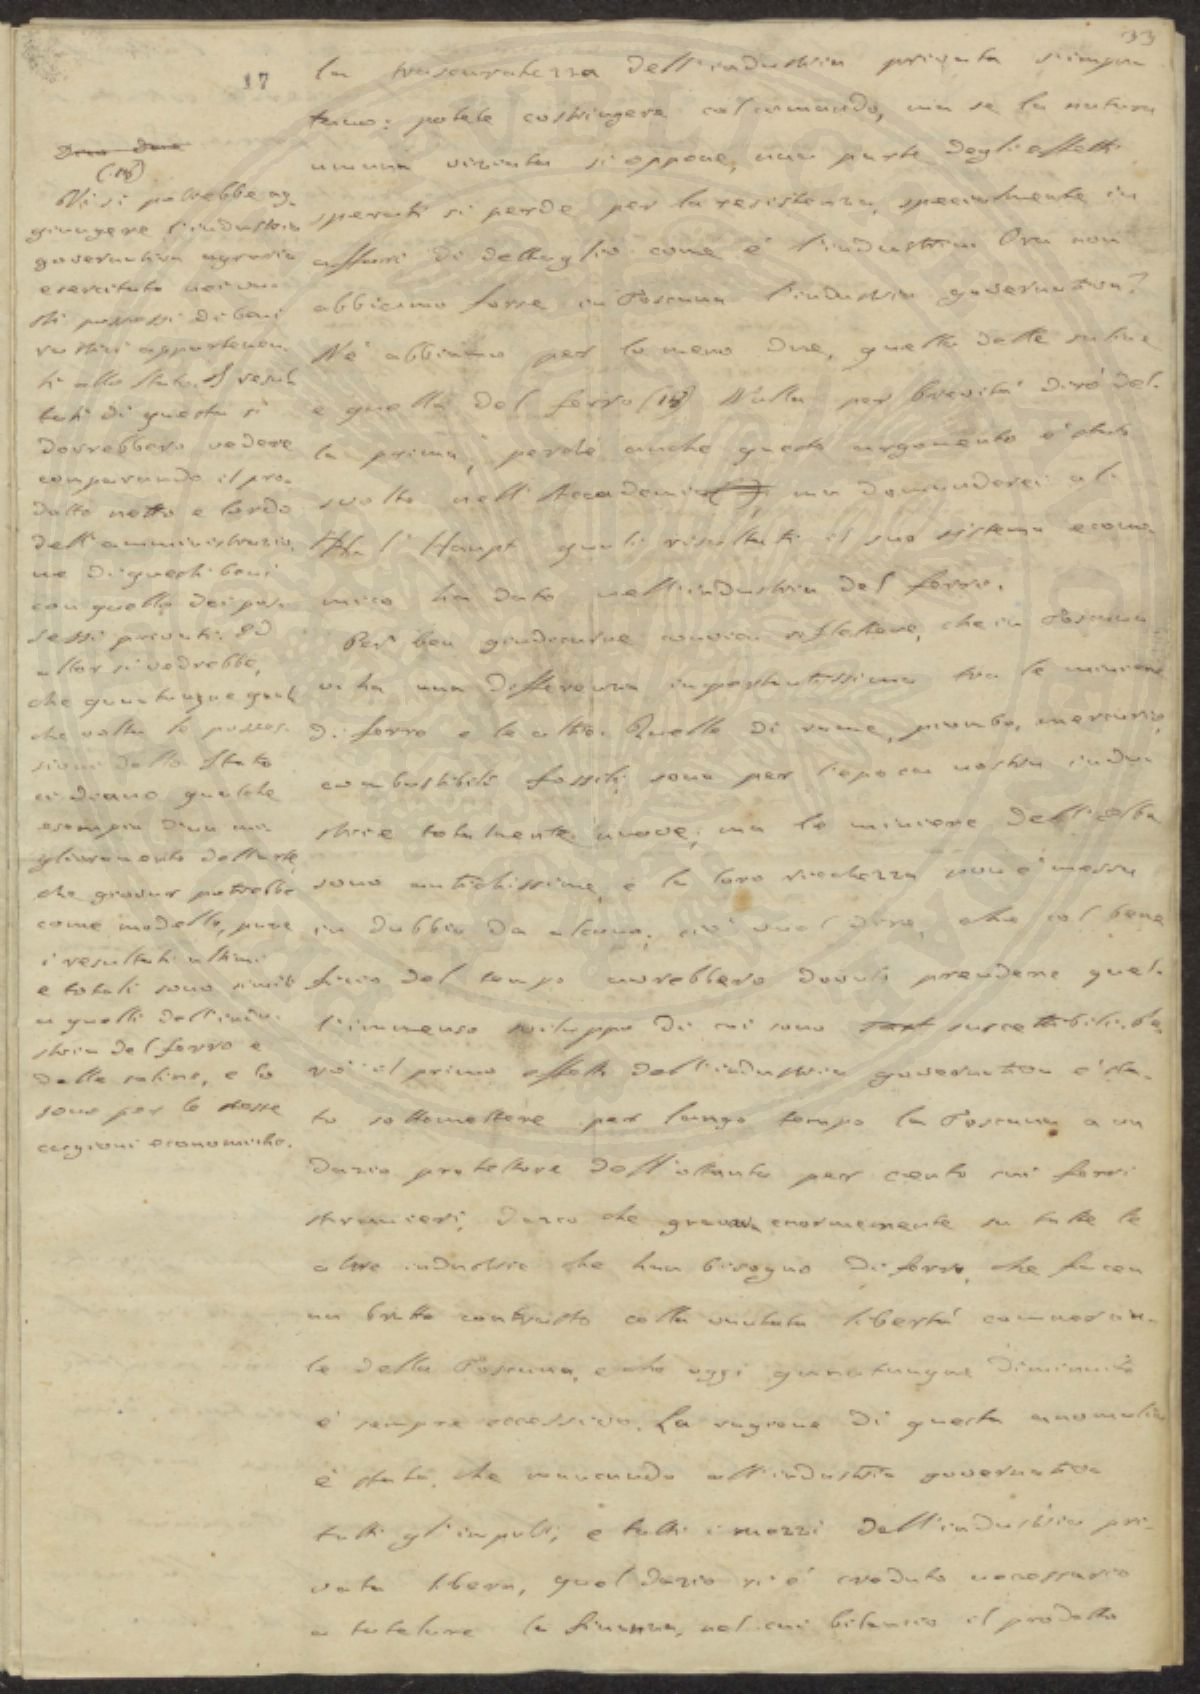 33
17
la trascuratezza dell'industria privata s'impu
tano: potete costringere col comando, ma se la natura
umana viziata si oppone, una parte degli effetti
sperati si perde per la resistenza, specialmente in
affari di dettaglio come è l'industria. Ora non
abbiamo forse in Toscana l'industria governativa?
Ne abbiamo per lo meno due, quella delle saline
e quella del ferro (18) Nulla per brevità dirò del-
la prima, perché anche questo argomento è stato
svolto nell'Accademia, ma domanderei al-
l'Haupt quali risultati il suo sistema econo-
mico ha dato nell'industria del ferro.
Per ben giudicarne convien riflettere, che in Toscana
vi ha una differenza importantissima tra le miniere
di ferro e le altre. Quelle di rame, piombo, mercurio,
combustibili fossili, sono per l'epoca nostra indu-
strie totalmente nuove; ma le miniere dell'Elba
sono antichissime, e la loro ricchezza non è messa
in dubbio da alcuno, ciò vuol dire, che col bene
ficio del tempo avrebbero dovuto prendere quel-
l'immenso sviluppo di cui sono suscettibili. Pe
rò il primo effetto dell'industria governativa è sta-
to sottomettere per lungo tempo la Toscana a un
dazio protettore dell'ottanta per cento sui ferri
stranieri, dazio che gravava enormemente su tutte le
altre industrie che han bisogno di ferro, che facea
un brutto contrasto colla vantata libertà commercia-
le della Toscana, e che oggi quantunque diminuito
è sempre eccessivo. La ragione di questa anomalia
è stata, che mancando all'industria governativa
tutti gl'impulsi, e tutti i mezzi dell'industria pri-
vata libera, quel dazio si è creduto necessario
a tutelare la finanza, nel cui bilancio il prodotto
(18)
Vi si potrebbe ag-
giungere l'industria
governativa agraria
esercitata nei va-
sti possessi di beni
rustici appartenen-
ti allo Stato. I resul
tati di questa si
dovrebbero vedere
comparando il pro-
dotto netto e lordo
dell'amministrazio
ne di questi beni
con quello dei pos-
sessi privati. Ed
allor si vedrebbe,
che quantunque qual
che volta le posses-
sioni dello Stato
ci diano qualche
esempio d'un mi-
glioramento dell'arte,
che giovar potrebbe
come modello, pure
i resultati ultimi
e totali sono simili
a quelli dell'indu-
stria del ferro e
delle saline, e lo
sono per le stesse
cagioni economiche.